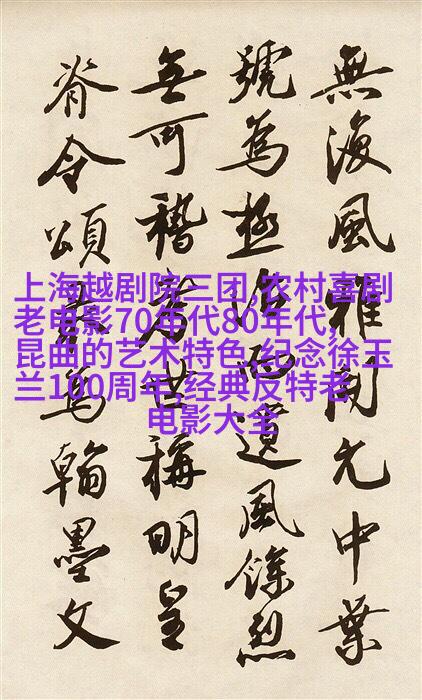 無復風雅開元中葉
號為極治而遺風餘烈
無可稽考世稱明皇
脊令頌最為翰墨文
上海越剧院三团,农村喜剧
老电影70年代80年代,
昆曲的艺术特色,纪念徐玉
兰100周年,经典反特老
电影大全